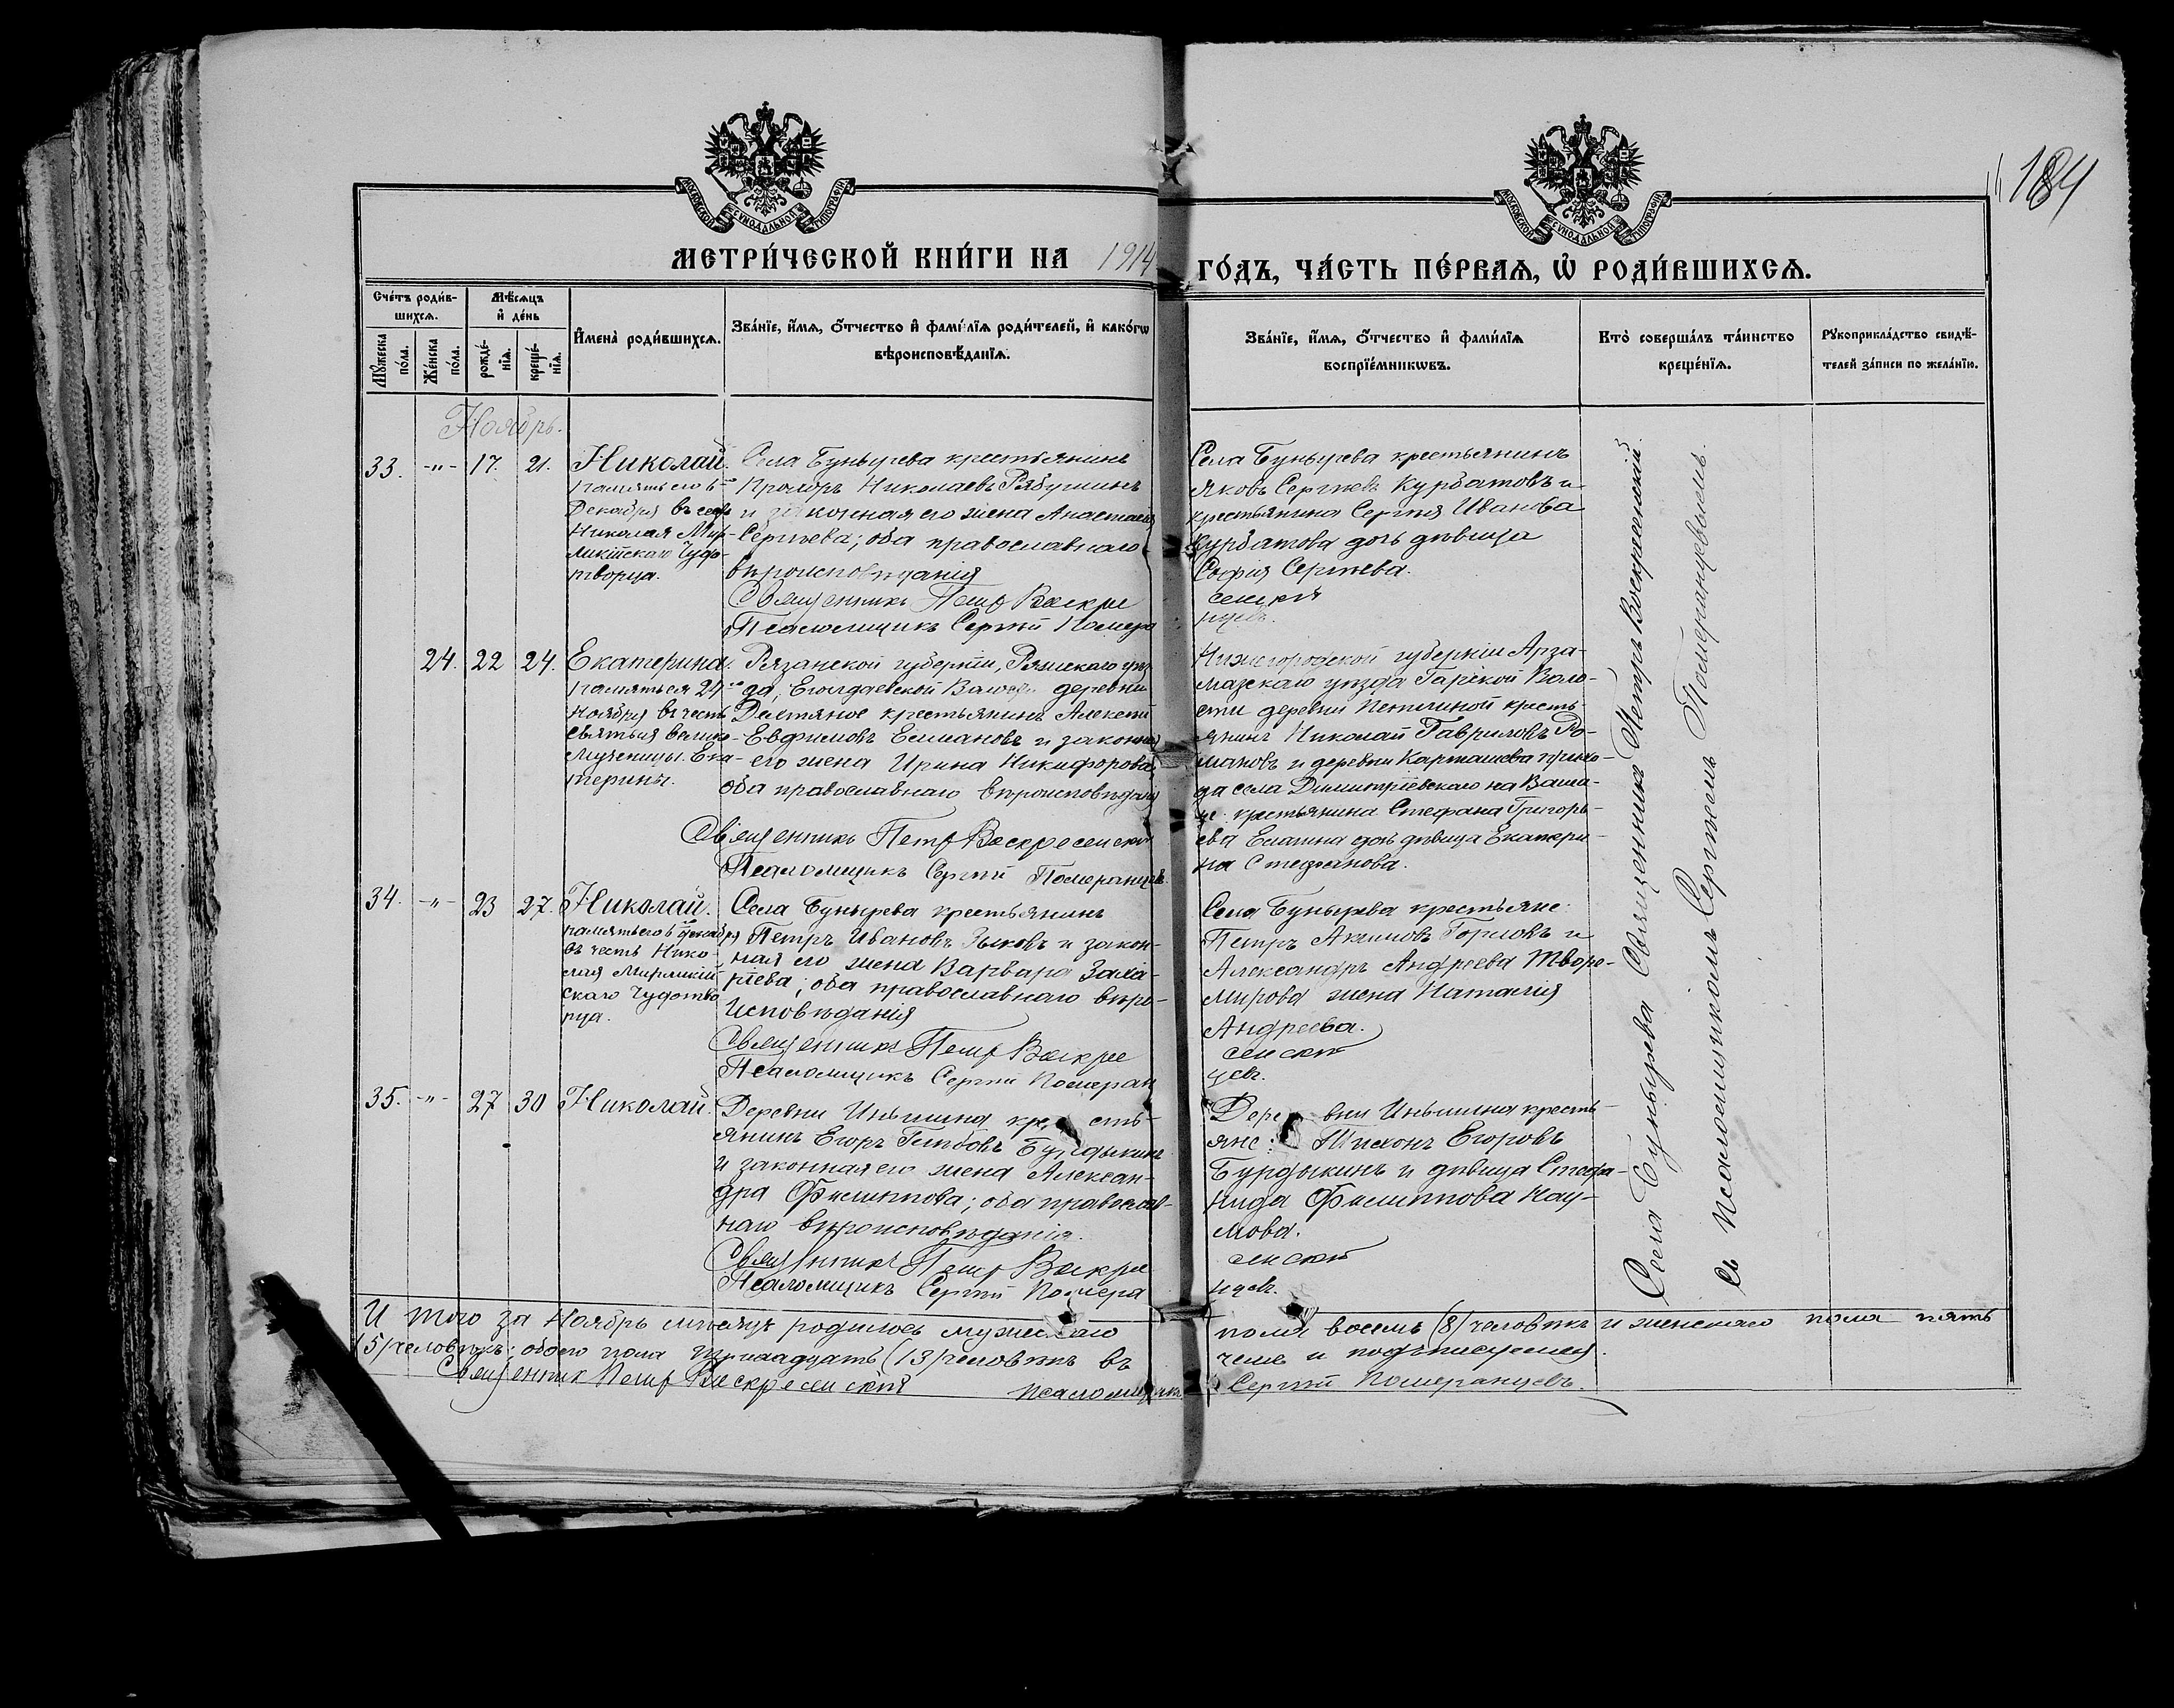 184
МОСКОВСКОЙ СѴНОДАЛЬНОЙ ТИПОГРАФІИ
МОСКОВСКОЙ СѴНОДАЛЬНОЙ ТИПОГРАФІИ
МЕТРИ́ЧЕСКОЙ КНИ́ГИ НА 1914 ГО́ДЪ, ЧА́СТЬ ПЕ́РВАѦ, Ѡ҆ РОДИ́ВШИХСѦ.
Сче́тъ роди́в-
шихсѧ.
Мꙋжеска по́ла.
Же́нска по́ла.
Мѣ́сѧцъ
и҆ де́нь
рожде́-
нїѧ.
креще́-
нїѧ.
И҆мена̀ роди́вшихсѧ.
Зва́нїе, и҆́мѧ, ѻ҆́тчество и҆ фами́лїѧ роди́телей, и҆ како́гѡ
вѣроисповѣ́данїѧ.
Зва́нїе, и҆́мѧ, ѻ҆́тчество и҆ фами́лїѧ
воспрїе́мникѡвъ.
Кто̀ соверша́лъ та́инство
креще́нїѧ.
Рꙋкоприкла́дство свидѣ́-
телей за́писи по жела́нїю.
Ноябрь.
33. -"- 17. 21. Николай.
память его 6го
Декабря въ честь
Николая Мир-
ликійскаго Чудо-
творца.
Села Бунырева крестьянинъ
Прохоръ Николаевъ Рябушинъ
и законная его жена Анастасія
Сергѣева; оба православнаго
вѣроисповѣданія
Священникъ Петръ Воскре
Псаломщикъ Сергій Помера
Села Бунырева крестьянинъ
Яковъ Сергѣевъ Курбатовъ и
крестьянина Сергѣя Иванова
Курбатова дочь дѣвица
Софія Сергѣева.
сенскій
нцевъ.
24. 22 24. Екатерина.
память ея 24го
Ноября въ честь
Святыя велико-
мученицы Ека-
терины.
Рязанской губерніи, Ряжскаго уѣз
да, Еголдаевской Волости деревни
крестьянинъ Алексій
Евфимовъ и законная
его жена Ирина Никифорова,
оба православнаго вѣроисповѣданія
Священникъ Петръ Воскресенскій
Псаломщикъ Сергій Померанцевъ.
Нижегородской губерніи Арза-
маскаго уѣзда Волo-
сти деревни кресть-
янинъ Николай Гавриловъ Ро-
мановъ и деревни Карташева прихо-
да села Димитріевскаго на Ваша-
не крестьянина Стефана Григорь-
ева дочь дѣвица Екатери-
на Стефанова.
34. -"- 23 27. Николай.
память его 6го декабря
въ честь Нико-
лая Мирликій
скаго Чудотво
рца.
Села Бунырева крестьянинъ
Петръ Ивановъ Зыковъ и закон-
ная его жена Варвара Заха-
ріева; оба православнаго вѣро-
исповѣданія
Священникъ Петръ Воскре
Псаломщикъ Сергій Померан
Села Бунырева крестьяне:
Петръ Акимовъ Горловъ и
Александръ Андреева Творо-
мирова жена Наталія
Андреева.
сенскій
цевъ.
35. -"- 27 30 Николай.
Деревни Иньшина кресть-
янинъ Егоръ Глѣбовъ Бурдыкинъ
и законная его жена Алексан-
дра Филиппова; оба православ-
наго вѣроисповѣданія.
Священникъ Петръ Воскре
Псаломщикъ Сергій Помера
Деревни Иньшина кресть-
яне: Тихонъ Егоровъ
Бурдыкинъ и дѣвица Стефа-
нида Филиппова Нау-
мова.
сенскій
нцевъ.
Села Бунырева Священникъ Петръ Воскресенскій
съ Псаломщикомъ Сергѣемъ Померанцевымъ.
Итого за Ноябрь мѣсяцъ родилось мужескаго пола восемь (8) человѣкъ и женскаго пола пять
(5) человѣкъ; обоего пола тринадцать (13) человѣкъ въ чемъ и подписуемся.
Священник Петръ Воскресенскій Псаломщикъ Сергій Померанцевъ.